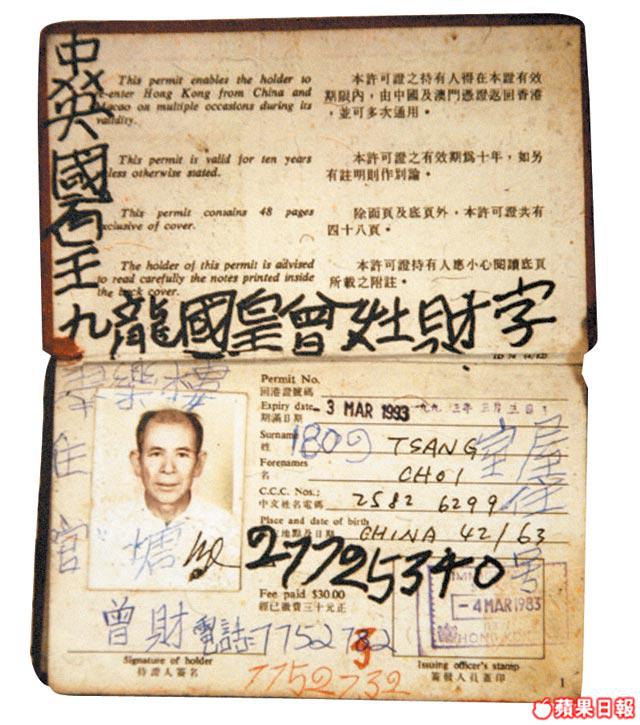 This permit enables the holder to
re-enter Hong Kong from China and
Macao on multiple occasions during its
validity.
本許可證之持有人得在本證有效
期限內，由中國及澳門憑證返回香港
，並可多次通用。
This permit is valid for ten years
unless otherwise stated.
本許可證之有效期爲十年，如另
有註明則作別論。
This permit contains 48 pages
exclusive of cover.
除面頁及底頁外，本許可證共有
四十八頁。
The holder of this permit is advised
to read carefully the notes printed inside
the back cover.
本許可證持有人應小心閱讀底頁
所載之附註。
國皇
九龍國皇曾灶財字
Permit No.
回港證號碼
Expiry date
期滿日期
3 MAR 1993
一九九三年三月三日
Surname
姓
TSANG
1809
室
屋
住
Forenames
名
CHOI
C.C.C. Nos.:
中文姓名電碼
2582 6299
Place and date of birth
地點及日期
CHINA 42/63
27725340
号
樂樓
住
官
塘
Fee paid $30.00
經已繳費三十元正
-4 MAR 1983
HONG KONG
曾財電話
7752732
Signature of holder
持證人簽名
7752732
Issuing officer's stamp
簽發人員蓋印
1
蘋果日報